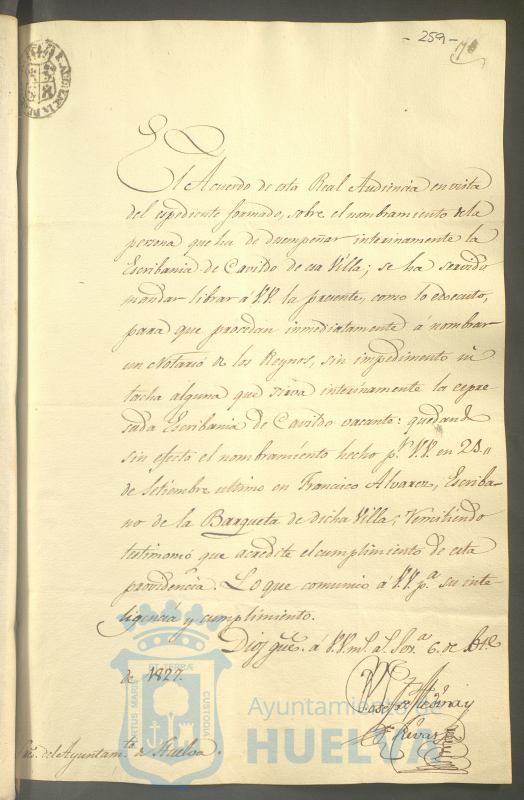 - 259 -
El Acuerdo de esta Real Audiencia en vista
del espediente formado, sobre el nombramiento de la
persona que ha de desempeñar interinamente la
Escribania de Cavildo de esa Villa; se ha servido
mandar librar á VV. la presente, como lo executo,
para que procedan inmediatamente á nombrar
un Notario de los Reynos, sin impedimento ni
tacha alguna que sirva interinamente la espre-
sada Escribania de Cavildo vacante: quedando
sin efecto el nombramiento hecho pr. VV. en
de Setiembre ultimo en Francisco Alvarez, Escriba-
no de la Barqueta de dicha Villa; remitiendo
testimonio que acredite el cumplimiento de esta
providencia. Lo que comunico á VV. pa. su inte-
ligencia y cumplimiento.
Dios gue. á VV. ms. as. Sevª 6. de
de 1827.
del Ayuntamto. de Huelva.
Ayuntamiento de
HUELVA
PORTUS MARIS ET TERRAE CUSTODIA